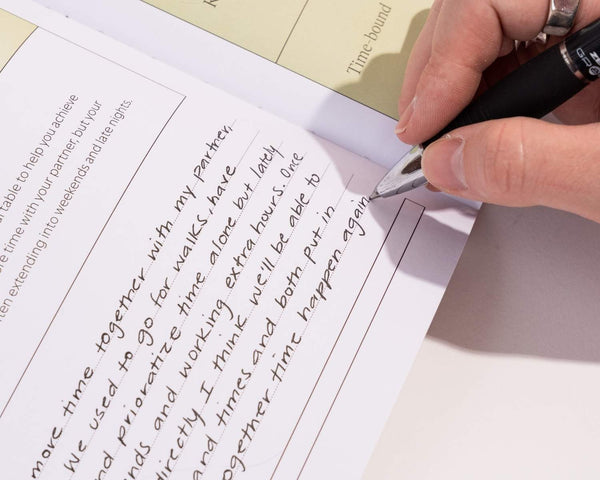 Time-bound
table to help you achieve
time with your partner, but your
extending into weekends and late nights.
more time together with my partner,
We used to go for walks, have
nd prioratize time alone but lately
nds and working extra hours. Once
directly I think we'll be able to
and times and both put in
ogether time happen again